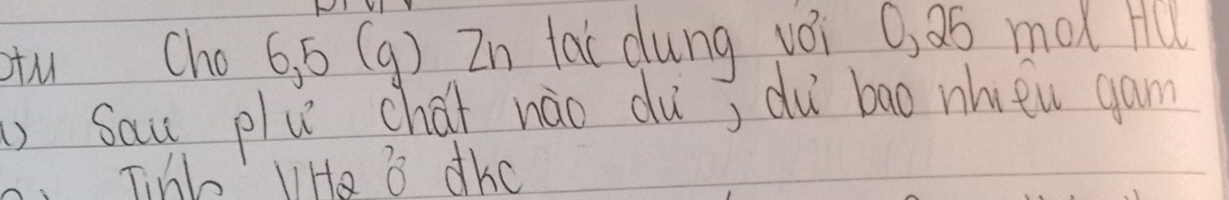 Cho 6,5 (g) Zn tác dung với 0,25 mol HCl
Sau plư chất nào dư, dư bao nhiêu gam
Tính VH2 ở đkc